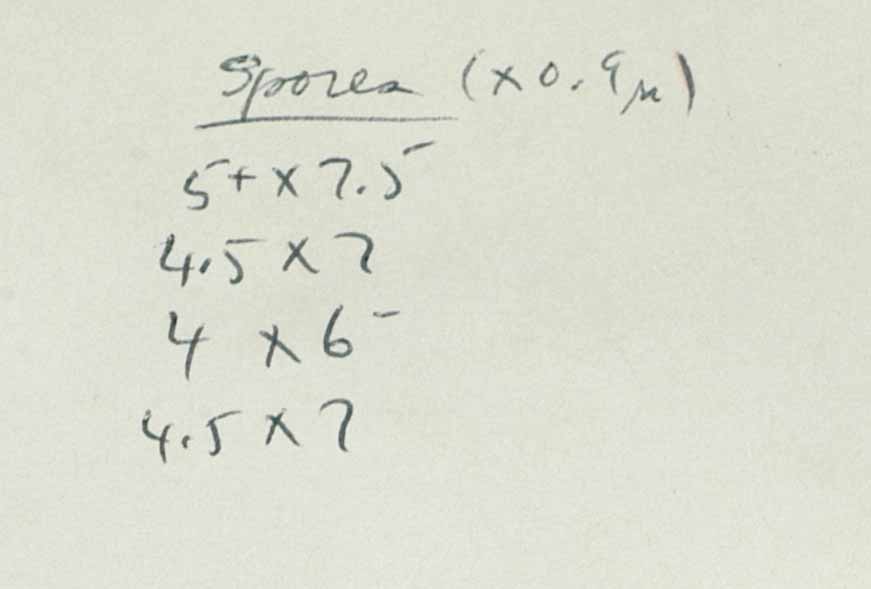 Spores (x 0.9µ)
5+ x 7.5
4.5 x 7
4 x 6-
4.5 x 7